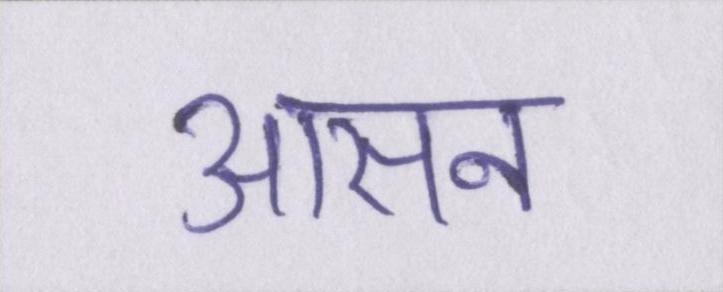 आसन